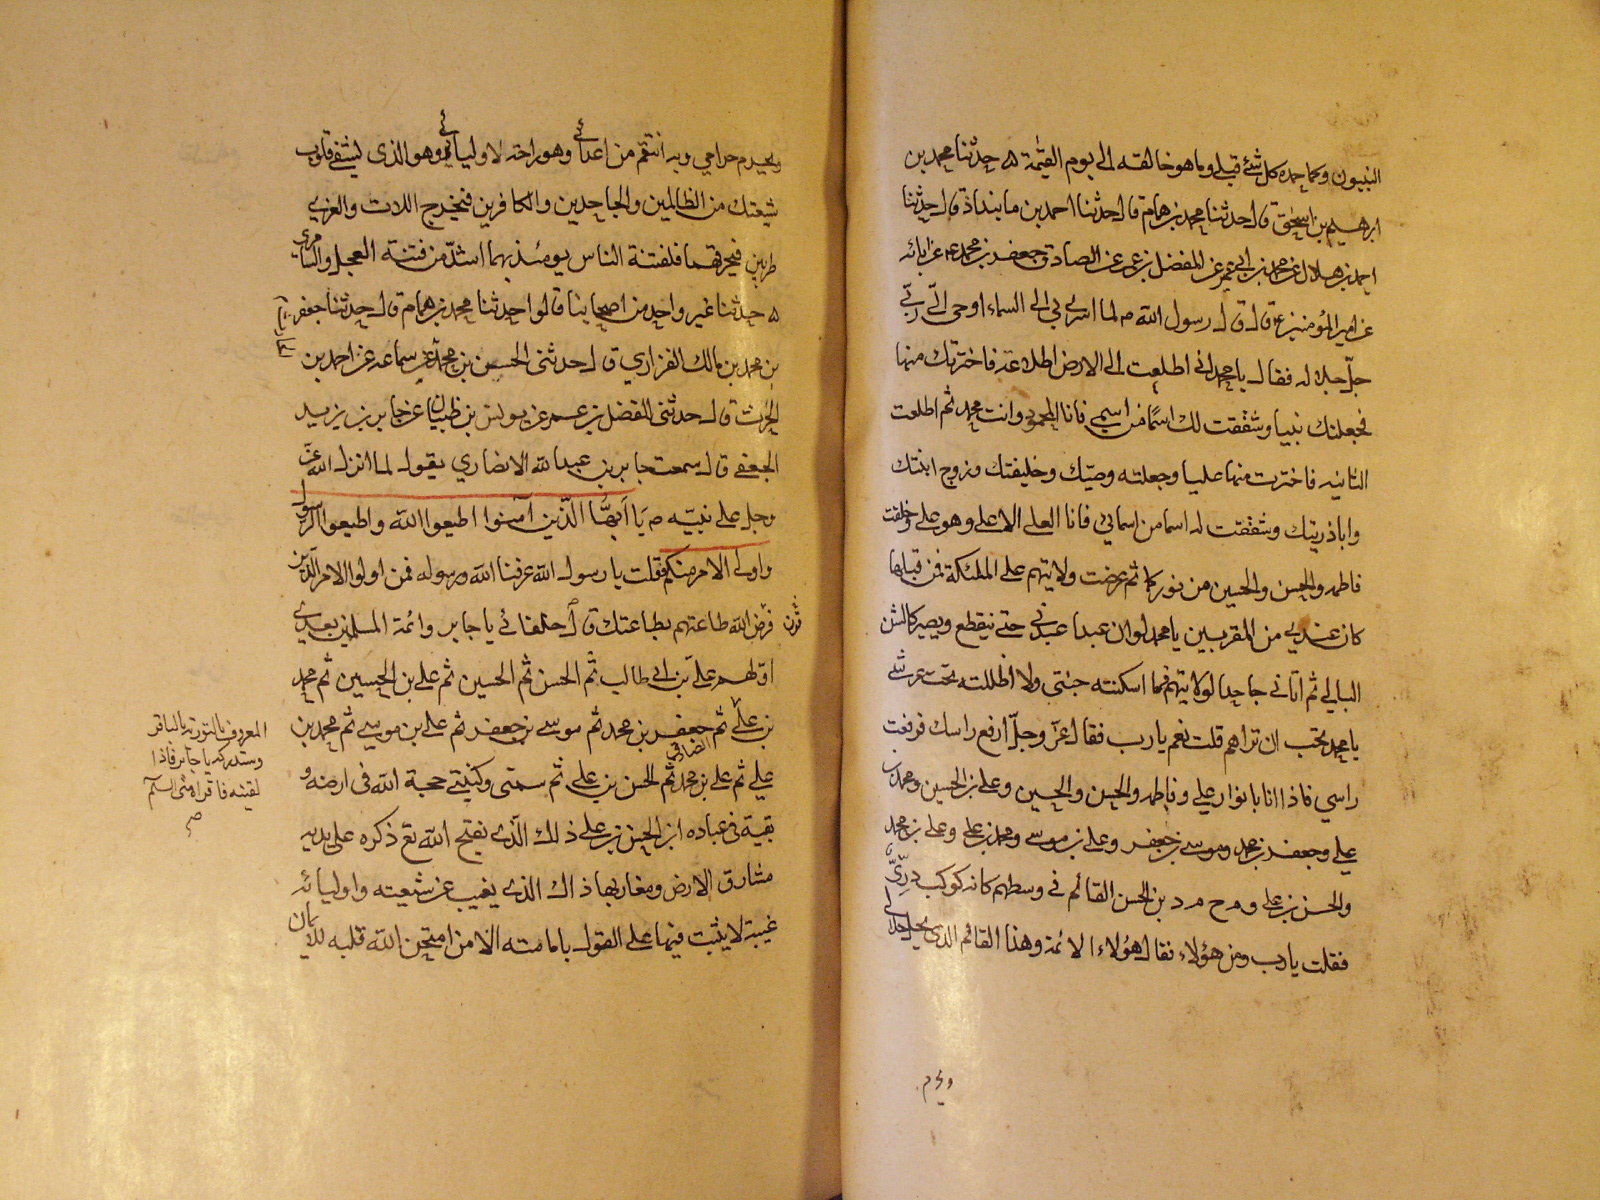 النبيون وبما حمده كل شئ قبلي وما هو خالقه الى يوم القيمة ۵ حدثنا محمد بن
ابرهيم بن اسحق قال حدثنا محمد بن همام قال حدثنا احمد بن مابنداذ قال حدثنا
احمد بن هلال عن محمد بن ابي عمير عن المفضل بن عمر عن الصادق جعفر بن محمد ع عن ابائه
عن امير المؤمنين ع قال قال رسول الله ص لما اسري بي الى السماء اوحى الّي ربّي
جلّ جلاله فقال يا محمد اني اطلعت الى الارض اطلاعة فاخترتك منها
فجعلتك نبيا وشققت لك اسمًا من اسمي فانا المحمود وانت محمد ثم اطلعت
الثانيه فاخترت منها عليا وجعلته وصيّك وخليفتك وزوج ابنتك
وابا ذريتك وشققت له اسما من اسمائي فانا العلي الاعلى وهو علي وخلقت
فاطمه والحسن والحسين من نوركما ثم عرضت ولايتهم على الملئكة فمن قبلها
كان عندي من المقربين يا محمد لو ان عبدا عبدني حتى ينقطع ويصير كالشن
البالي ثم اتاني جاحدا لولايتهم فما اسكنته جنتي ولا اظللته تحت عرشي
يا محمد تحب ان تراهم قلت نعم يا رب فقال عزّ وجلّ ارفع راسك فرفعت
راسي فاذا انا بانوار علي وفاطمه والحسن والحسين وعلي بن الحسين ومحمد بن
علي وجعفر بن محمد وموسى بن جعفر وعلي بن موسى ومحمد بن علي وعلي بن محمد
والحسن بن علي و م ح م د بن الحسن القائم في وسطهم كانه كوكب درّيّ
فقلت يا رب ومن هؤلاء فقال هؤلاء الائمة وهذا القائم الذي يحل حلالي
ويحرم
ويحرم حرامي وبه انتقم من اعدائي وهو راحة لاوليائي وهو الذي يشفي قلوب
شيعتك من الظالمين والجاحدين والكافرين فيخرج اللات والعزي
طريين فيحرقهما فلفتنة الناس يومئذ بهما اشدّ من فتنة العجل والسامري
۵ حدثنا غير واحد من اصحابنا قالوا حدثنا محمد بن همام قال حدثنا جعفر
بن محمد بن مالك الفزاري قال حدثنى الحسن بن محمد بن سماعه عن احمد بن
الحرث قال حدثنى المفضل بن عمر عن يونس بن ظبيان عن جابر بن يزيد
الجعفي قال سمعت جابر بن عبدالله الانصاري يقول لما انزل الله عزّ
وجل على نبيّه ص يَا اَيُّهَا الَّذين آمنوا اطيعوا الله واطيعوا الرسول
واولى الامر منكم فقلت يا رسول الله عرفنا الله ورسوله فمن اولوا الامر الّذين
قرن
فرض الله طاعتهم بطاعتك قال خلفائي يا جابر وائمة المسلمين بعدي
اوّلهم علّي بن ابي طالب ثم الحسن ثم الحسين ثم علي بن الحسين ثم محمد
بن علّي ثم جعفر بن محمد ثم موسى بن جعفر ثم علي بن موسى ثم محمد بن
الصادق
علي ثم علي بن محمد ثم الحسن بن علي ثم سميّي وكنيّي حجة الله في ارضه و
بقية في عباده ابن الحسن بن علي ذلك الّذي يفتح الله تع ذكره على يديه
مشارق الارض ومغاربها ذاك الذي يغيب عن شيعته واوليائه
غيبة لا يثبت فيها على القول بامامته الا من امتحن الله قلبه للايمان
المعروف بالتورية بالباقر
وستدركه يا جابر فاذا
لقيته فاقراه منّي السلم
صح